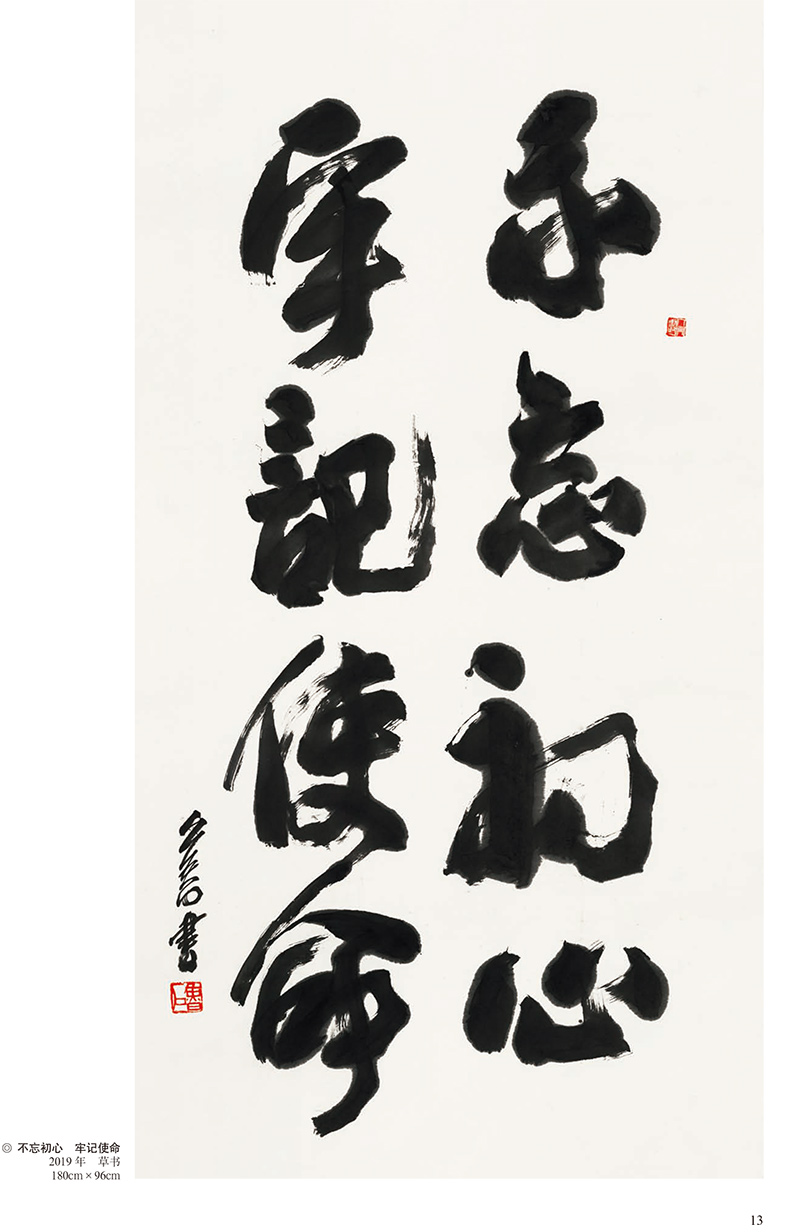 不忘初心
牢記使命
書
◎ 不忘初心　牢记使命
2019 年　草书
180cm × 96cm
13